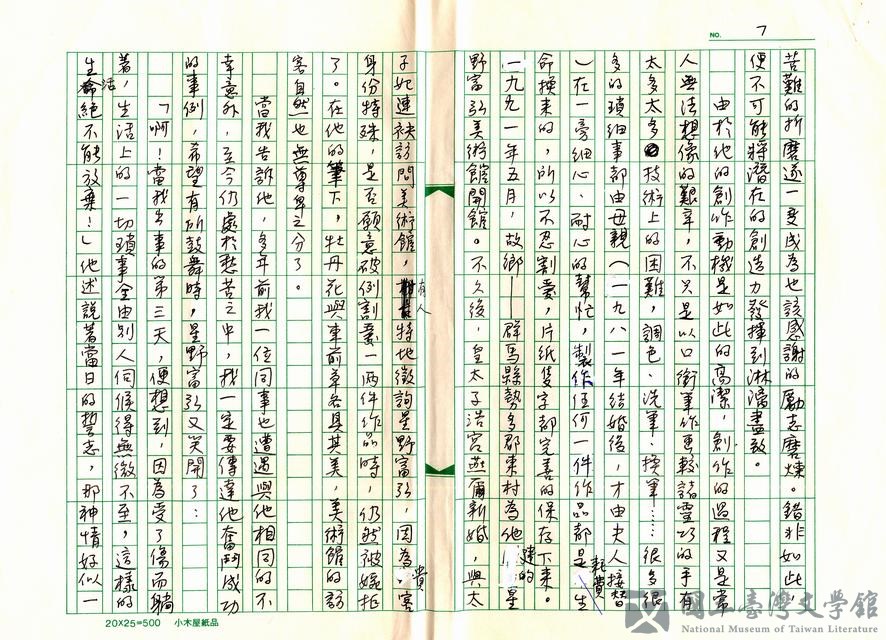 NO. 7
苦難的折磨遂一變成為也該感謝的勵志磨煉。錯非如此,
便不可能將潛在的創造力發揮到淋漓盡致。
由於他的創作動機是如此的高潔,創作的過程又是常
人無法想像的艱辛,不只是以口銜筆作畫較諸靈巧的手有
太多太多技術上的困難,調色、洗筆、換筆……很多很
多的瑣細事都由母親(一九八一年結婚後,才由夫人接替
)在一旁細心、耐心的幫忙,製作任何一件作品都是耗費生
命換來的,所以不忍割愛,片紙隻字都完善的保存下來。
一九九一年五月,故鄉——群馬縣勢多郡東村為他建的星
野富弘美術館開館。不久後,皇太子浩宮燕爾新婚,與太
子妃連袂訪問美術館,有人特地徵詢星野富弘,因為貴客
身份特殊,是否願意破例割愛一兩件作品時,仍然被婉拒
了。在他的筆下,牡丹花與車前草各具其美,美術館的訪
客自然也無尊卑之分了。
當我告訴他,多年前我一位同事也遭遇與他相同的不
幸意外,至今仍處於愁苦之中,我一定要傳達他奮鬥成功
的事例,希望有所鼓舞時,星野富弘又笑開了:
「啊!當我出事的第三天,便想到,因為受了傷而躺
著,生活上的一切瑣事全由別人伺候得無微不至,這樣的
生活絕不能放棄!」他述說著當日的誓志,那神情好似一
20X25=500 小木屋紙品
國立臺灣文學館
National Museum of Taiwan Literature